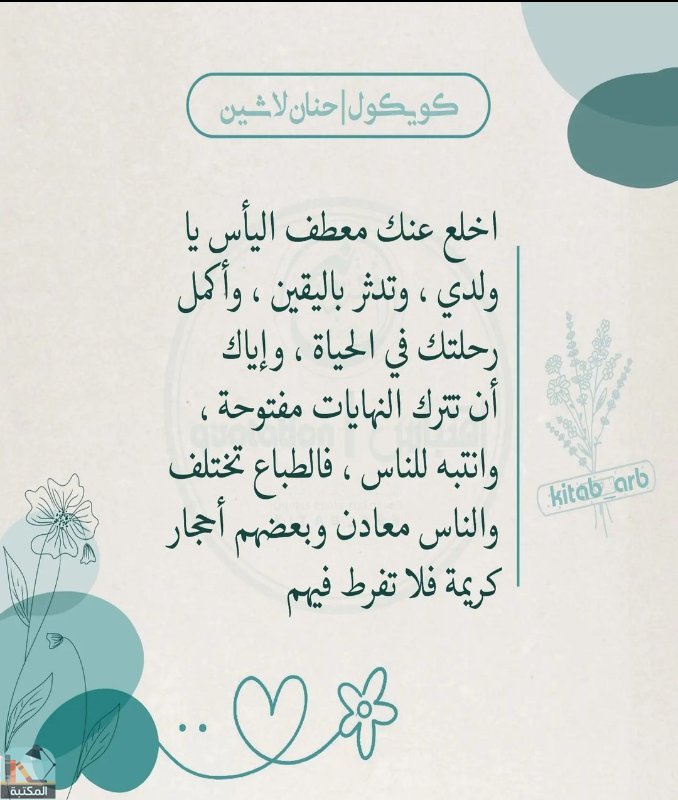 كويكول | حنان لاشين
اخلع عنك معطف اليأس يا
ولدي ، وتدثر باليقين ، وأكمل
رحلتك في الحياة ، وإياك
أن تترك النهايات مفتوحة ،
وانتبه للناس ، فالطباع تختلف
والناس معادن وبعضهم أحجار
كريمة فلا تفرط فيهم
kitab_arb
المكتبة